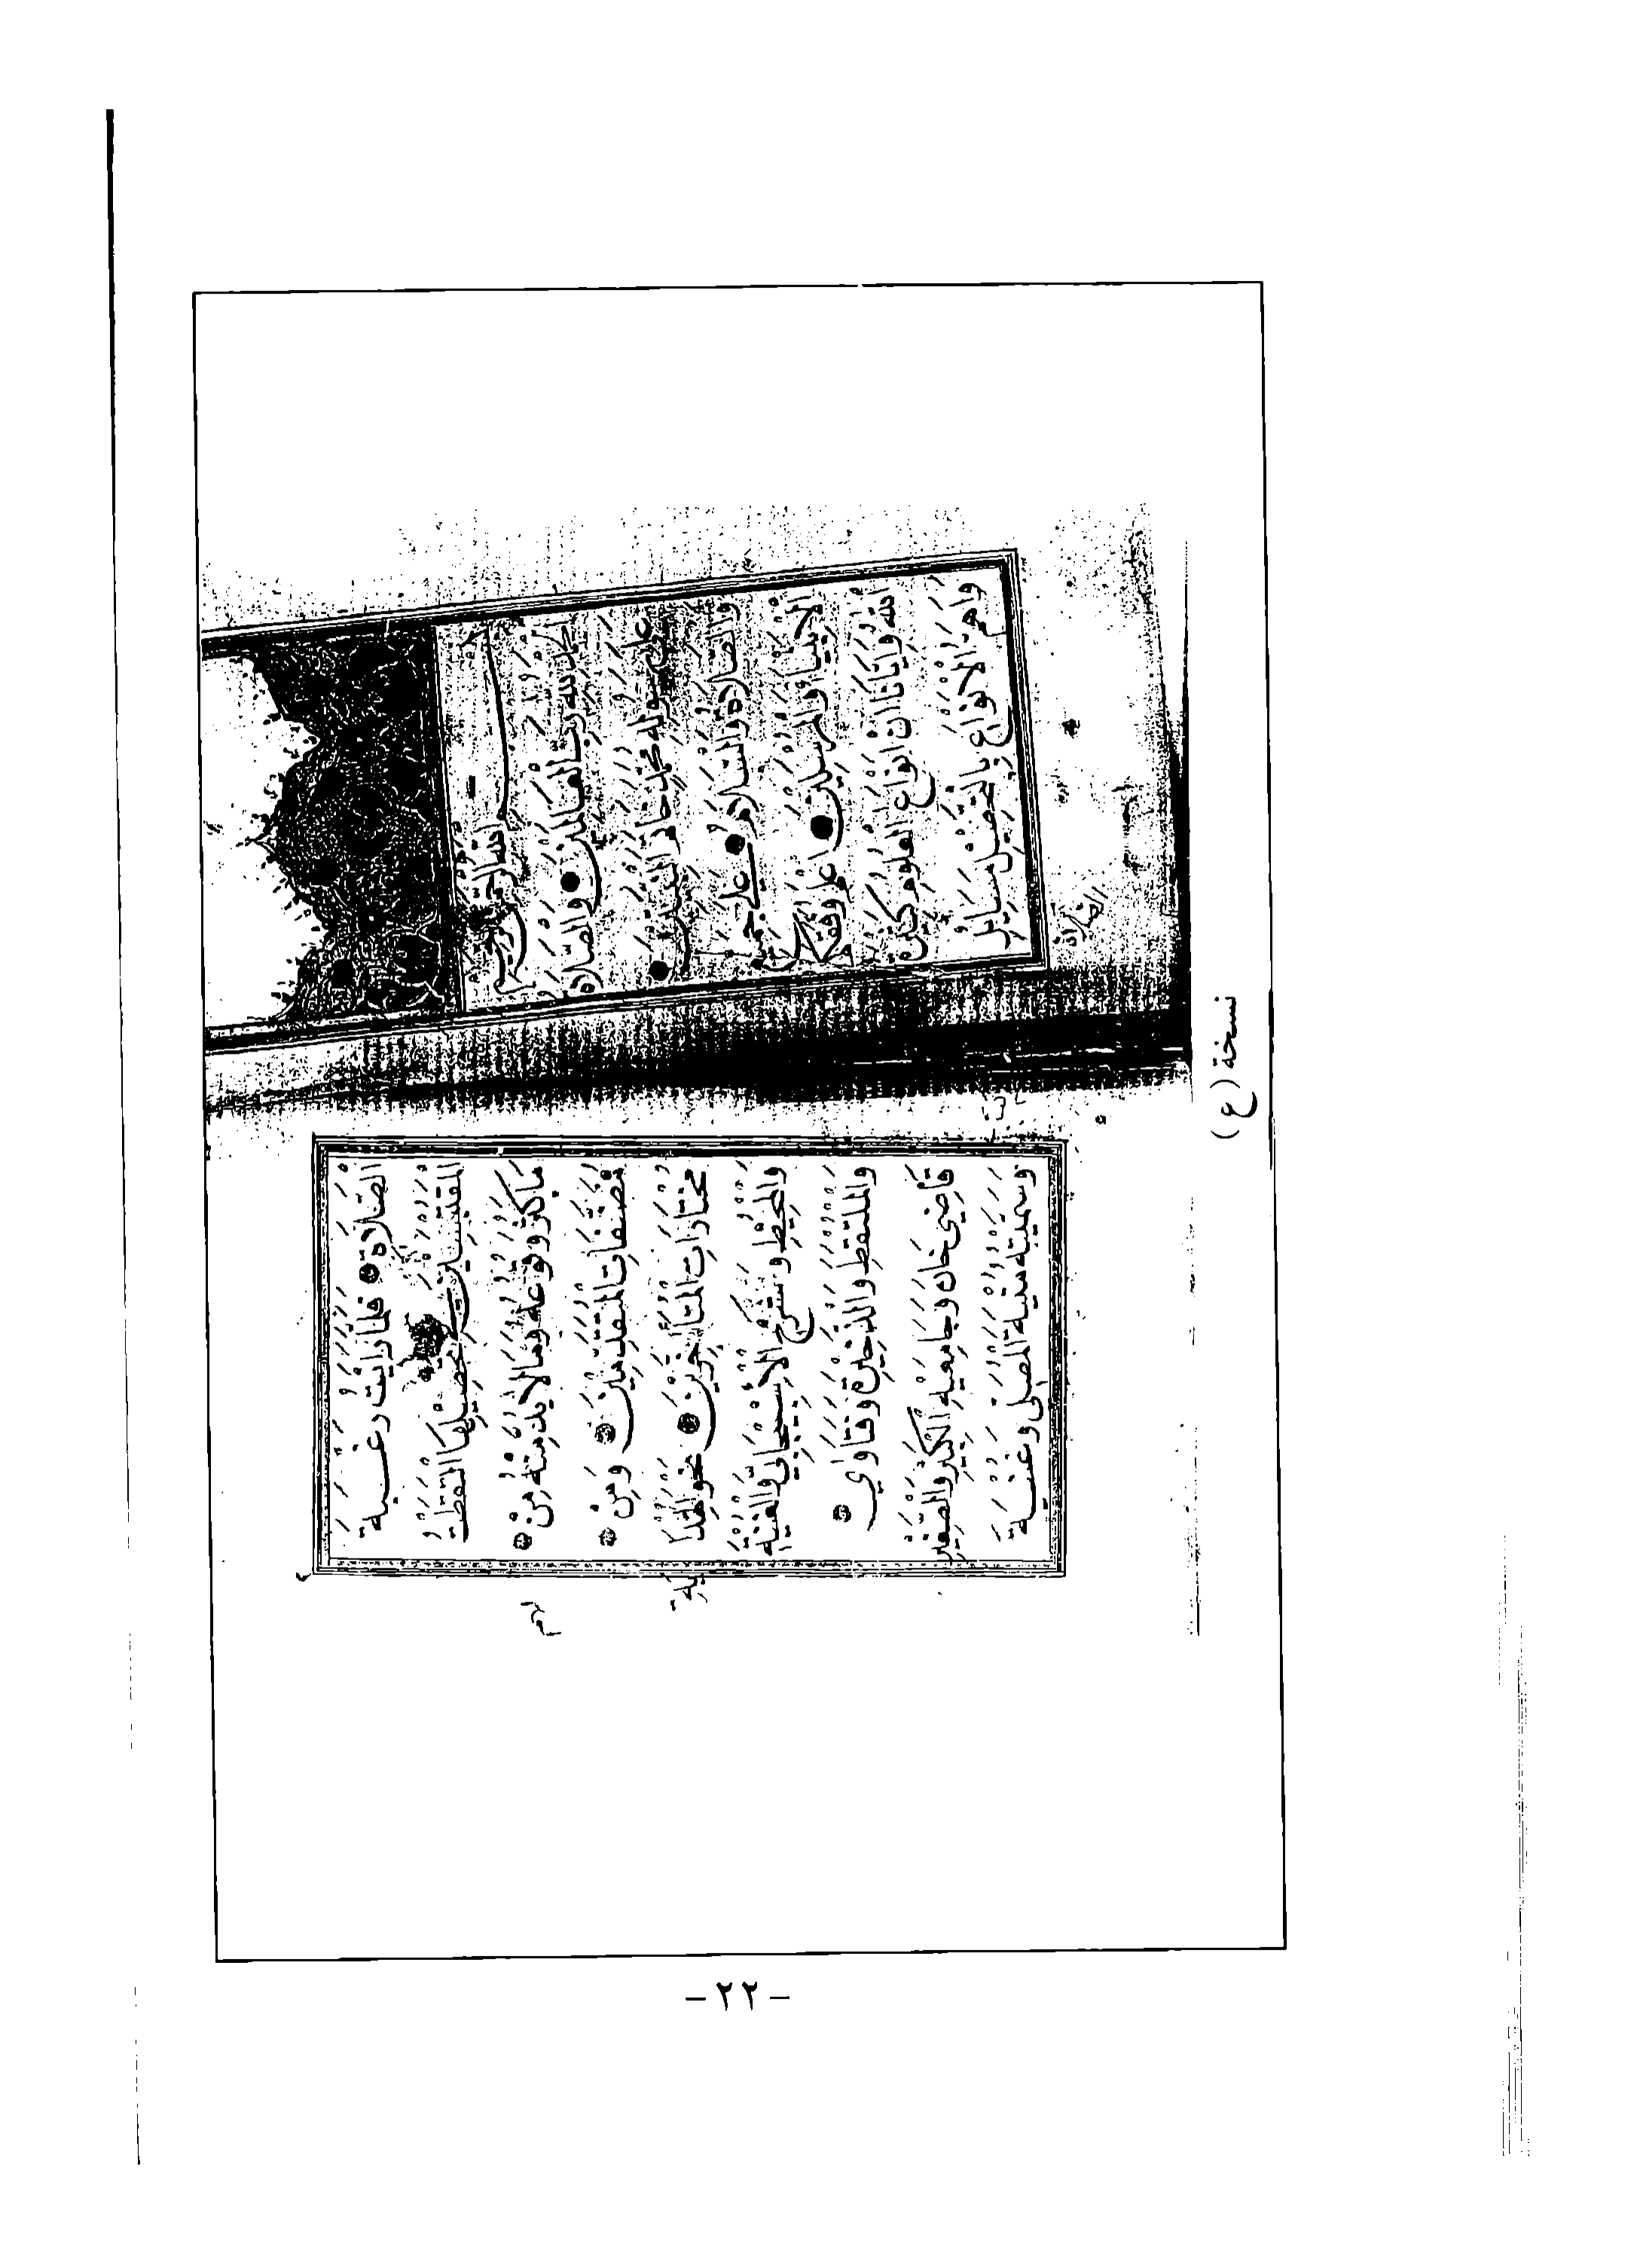 بسم الله الرحمن الرحيم
الحمد لله رب العالمين والصلاة
على رسوله محمد خاتم النبيين
والصلاة والسلام على جميع
الأنبياء والمرسلين اعلم وفقك
الله وإيانا أن أنواع العلوم كثيرة
وأهم الأنواع بالتحصيل مسائل
الصلاة
الصلاة فلما رأيت رغبة
المقتبسين تحصيلها التقطت
ما كثر وقوعه وما لا بد منه من
مصنفات المتقدمين ومن
مختارات المتأخرين نحو الهداية
والمحيط وشرح الأسبيجابي والغنية
والملتقط والذخيرة وفتاوي
قاضي خان وجامعيه الكبير والصغير
وسميته منية المصلي وغنية
نسخة (ع)
-٢٢-